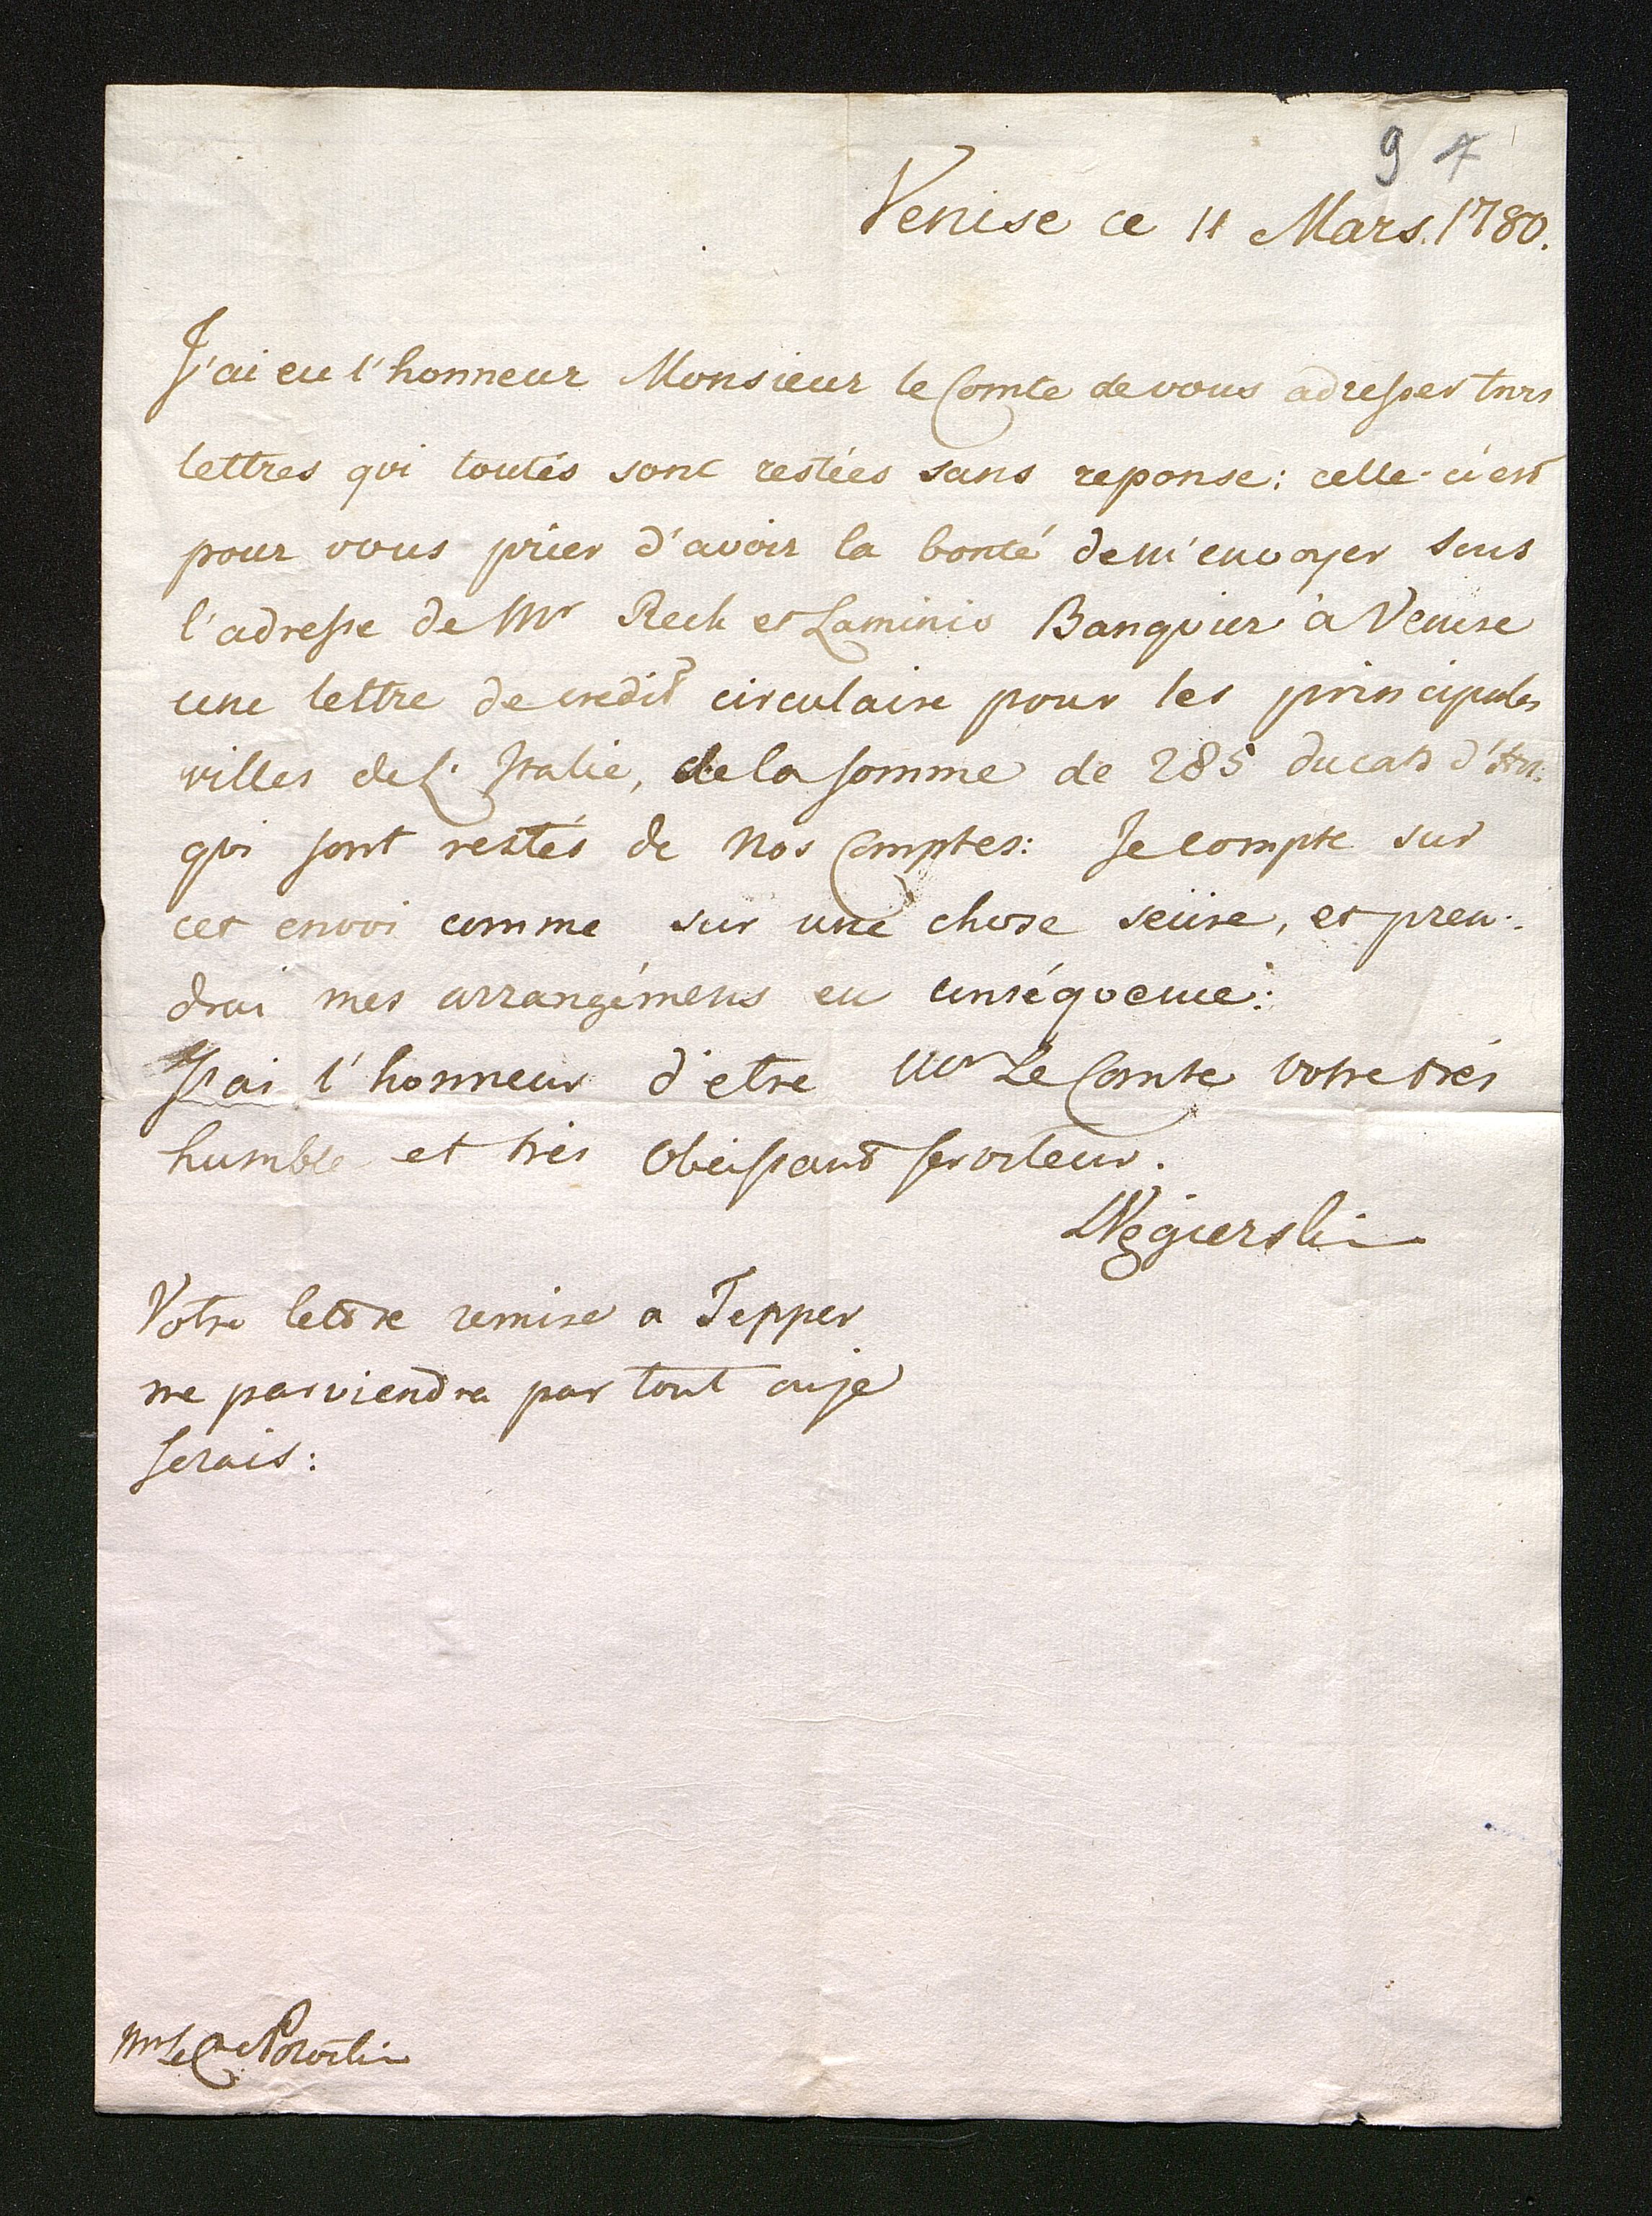 9 7
Venise ce 11 Mars. 1780.
J'ai eu l'honneur Monsieur le Comte de vous adresser trois
lettres qui toutes sont restées sans reponse: celle-ci est
pour vous prier d'avoir la bonté de m'envoyer sous
l'adresse de Mr Reck et Laminio Banquier à Venise
une lettre de credit circulaire pour les principales
villes de L'Italie, de la somme de 285 ducats d'
qui sont restés de nos Comptes: Je compte sur
cet envoi comme sur une chose seüre, et pren-
drai mes arrangémens en conséquence:
J'ai l'honneur d'etre Mr Le Comte votre trés
humble et trés Obeissant serviteur.
Węgierski
Votre lettre remise a Tepper
me parviendra par tout ou je
serais:
Mr Le Cte Potocki